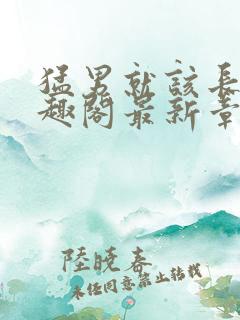 猛男就該長
趣閣最新章
陸曉春
未任同意禁止转载